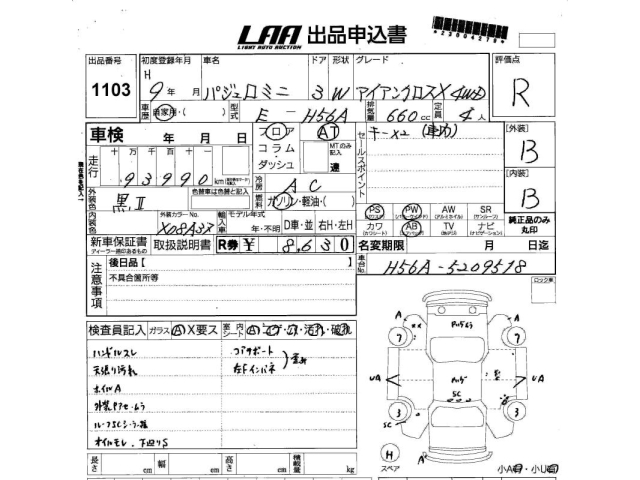 LAA 出品申込書
LIGHT AUTO AUCTION
出品番号 初度登録年月 車名 ドア 形状 グレード 評価点
1103 H 9年 月 パジェロミニ 3 W アイアンクロスX 4WD R
車歴 自家用・( ) 型式 E - H56A 排気量 660 cc 定員 4 人
車検 年 月 日 フロア AT セールスポイント キー×2 【外装】
コラム MTのみ記入 B
ダッシュ 速
走行 十万 万 千 百 十
93990 km
冷房 AC 【内装】
外装色 黒II 色替車は色替と記入 燃料 ガソリン・軽油・( ) B
PS PW AW SR 純正品のみ丸印
内装色 外装カラーNo. X08A37 輸入車 モデル年式 年・不明 D車・並 右H・左H カワ AB TV ナビ
新車保証書 取扱説明書 R券 ¥ 8,630 名変期限 月 日迄
ディーラー印のあるもの
注意事項 後日品〔 〕 車台No. H56A-5209518
不具合箇所等
検査員記入 ガラス Ⓐ X要ス
ハンドルスレ コアサポート
天張り汚れ 左Fインパネ
ホイルA
オイルモレ、下廻りS
長さ cm 幅 cm 高さ cm 積載量 kg
スペア H